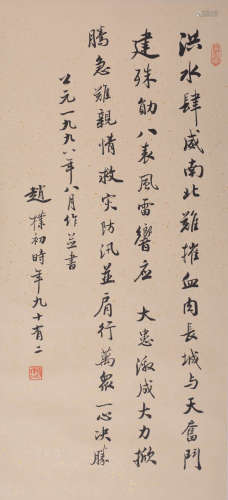 洪水肆威南北難摧血肉長城与天奮鬥
建殊勛八表風雷響应 大患激成大力掀
騰急難親情救灾防汛並肩行萬衆一心决勝
公元一九九八年八月作並書
趙樸初時年九十有二